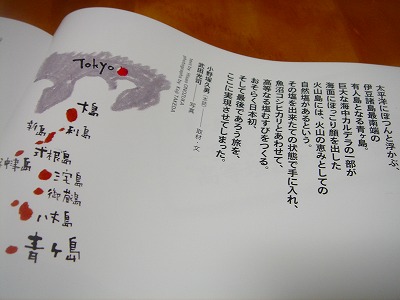 太平洋にぽつんと浮かぶ、
伊豆諸島最南端の
有人島となる青ヶ島。
巨大な海中カルデラの一部が
海面にぽっこり顔を出した
火山島には、火山の恵みとしての
自然塩があるという。
その塩を出来たての状態で手に入れ、
魚沼コシヒカリとあわせて、
高等なる塩むすびをつくる。
おそらく日本初、
そして最後であろう旅を、
ここに実現させてしまった。
取材・文
写真
Tokyo
大島
利島
新島
式根島
神津島
三宅島
御蔵島
八丈島
青ヶ島